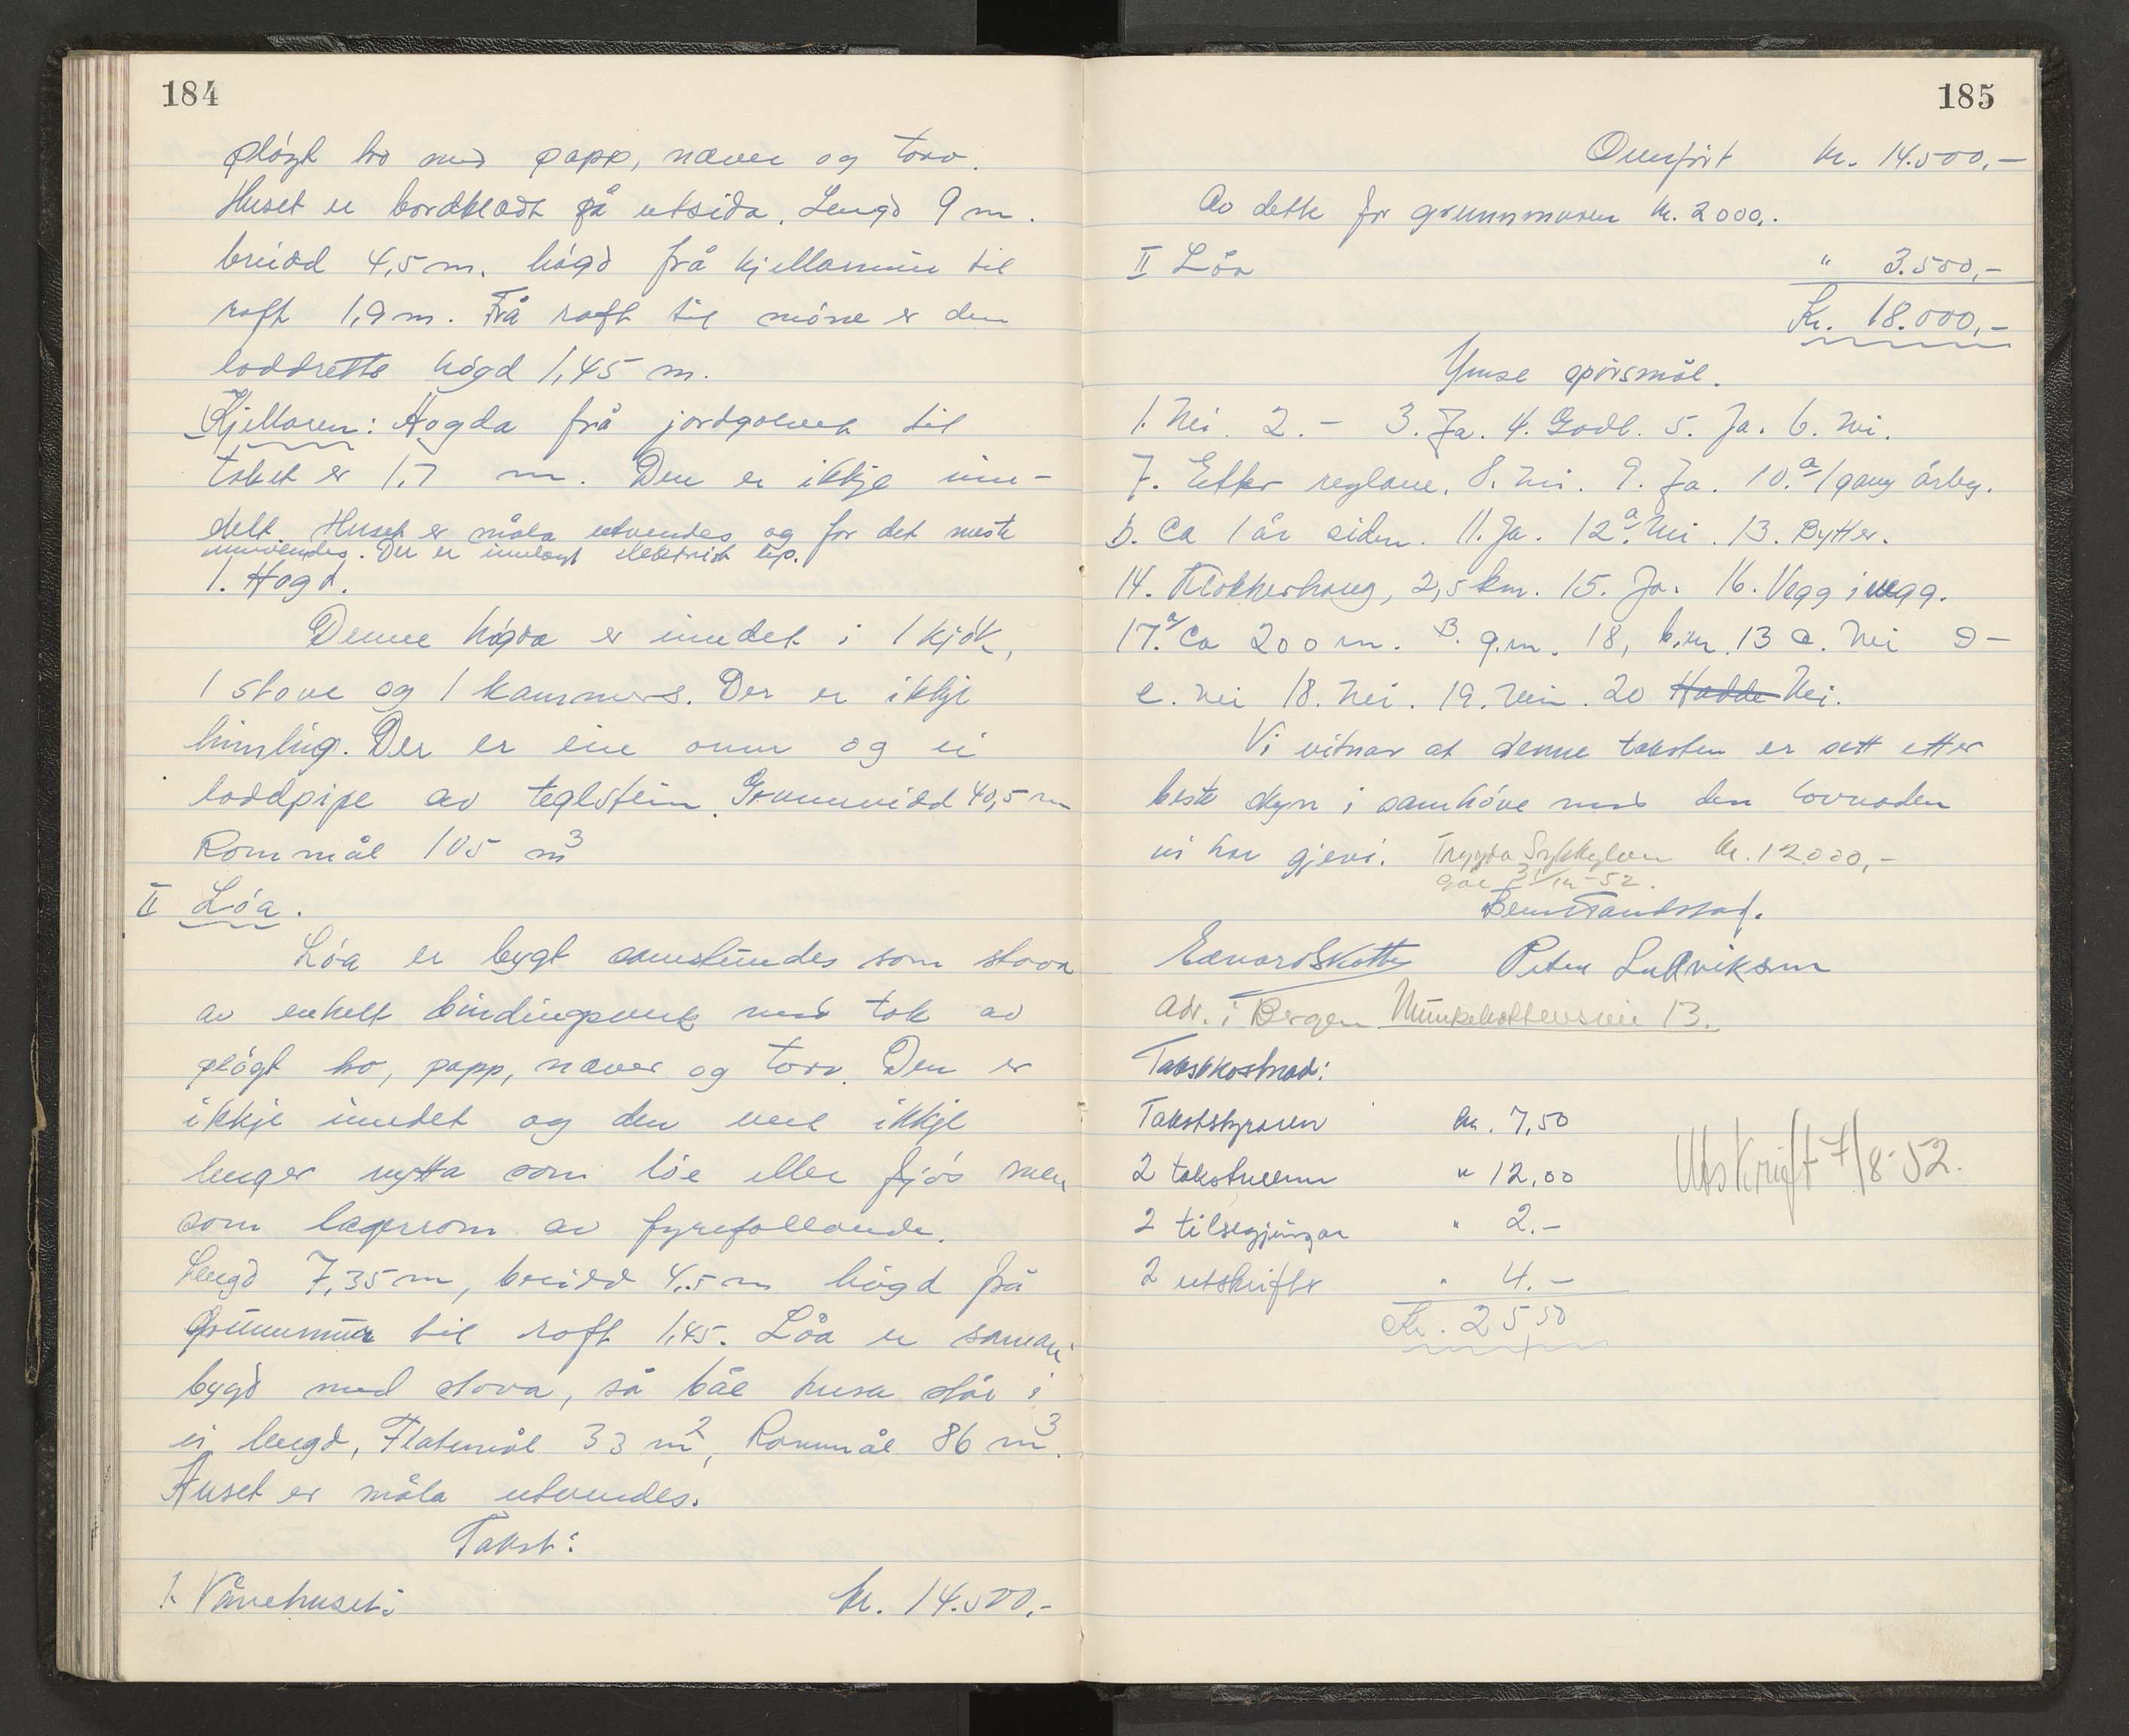 184
pløgt bo med papp, næver og torv.
Huset er bordkledt på utsida. Lengd 9 m.
breidd 4,5 m. høgd frå kjellarmur til
raft 1,9 m. Frå raft til møne er den
loddrette høgd 1,45 m.
Kjellaren: Høgda frå jordgolvet til
taket er 1,7 m. Den er ikkje inn-
delt. Huset er måla utvendes og for det meste
innvendes. Der er innlagt elektrisk
1. Høgd.
Denne høgda er inndelt i 1 kjøk,
1 stove og 1 kammers. Der er ikkje
himling. Der er ein omn og ei
loddpipe av teglstein. Grunnvidd 40,5 m
Rommål 105 m³
II Løa.
Løa er bygt samstundes som stova
av enkelt bindingsverk med tak av
pløgt bo, papp, næver og torv. Den er
ikkje inndelt og den vert ikkje
lenger nytta som løe eller fjøs men
som lagerrom av fyrefallande.
Lengd 7,35 m, breidd 4,5 m høgd frå
grunnmur til raft 1,45. Løa er saman
bygd med stova, så båe husa står i
ei lengd, Flatemål 33 m², Rommål 86 m³.
Huset er måla utvendes.
Takst:
1. Vånehuset: kr. 14.500,-
185
Overført kr. 14.500,-
Av dette for grunnmuren kr. 2000,.
II Løa " 3.500,-
Kr. 18.000,-
Ymse spørsmål.
1. Nei. 2. - 3. Ja. 4. Godt. 5. Ja. 6. Nei.
7. Etter reglane. 8. Nei. 9. Ja. 10. a/ 1 gang årleg.
b. Ca 1 år siden. 11. Ja. 12 a. Nei. 13. Bytter.
14. Klokkerhaug, 2,5 km. 15. Ja. 16. Vegg i vegg.
17. a/ Ca 200 m. B. g.nr. 18, b.nr. 13 c. Nei d -
e. Nei 18. Nei. 19. Nein. 20 Hadde Nei.
Vi vitnar at denne taksten er sett etter
beste skyn i samhøve med den lovnaden
vi har gjeve. Trygda Sykkylven kr. 12000,-
31/12-52.
Edvard Skotte Peter Ludviksen
adr. i Bergen Munkebottensvei 13.
Takstkostnad:
Takststyraren kr. 7,50
2 takstmenn " 12,00
2 tilsegjingar " 2.-
2 utskrifter " 4.-
Kr. 25 50
Utskrift 7/8-52.